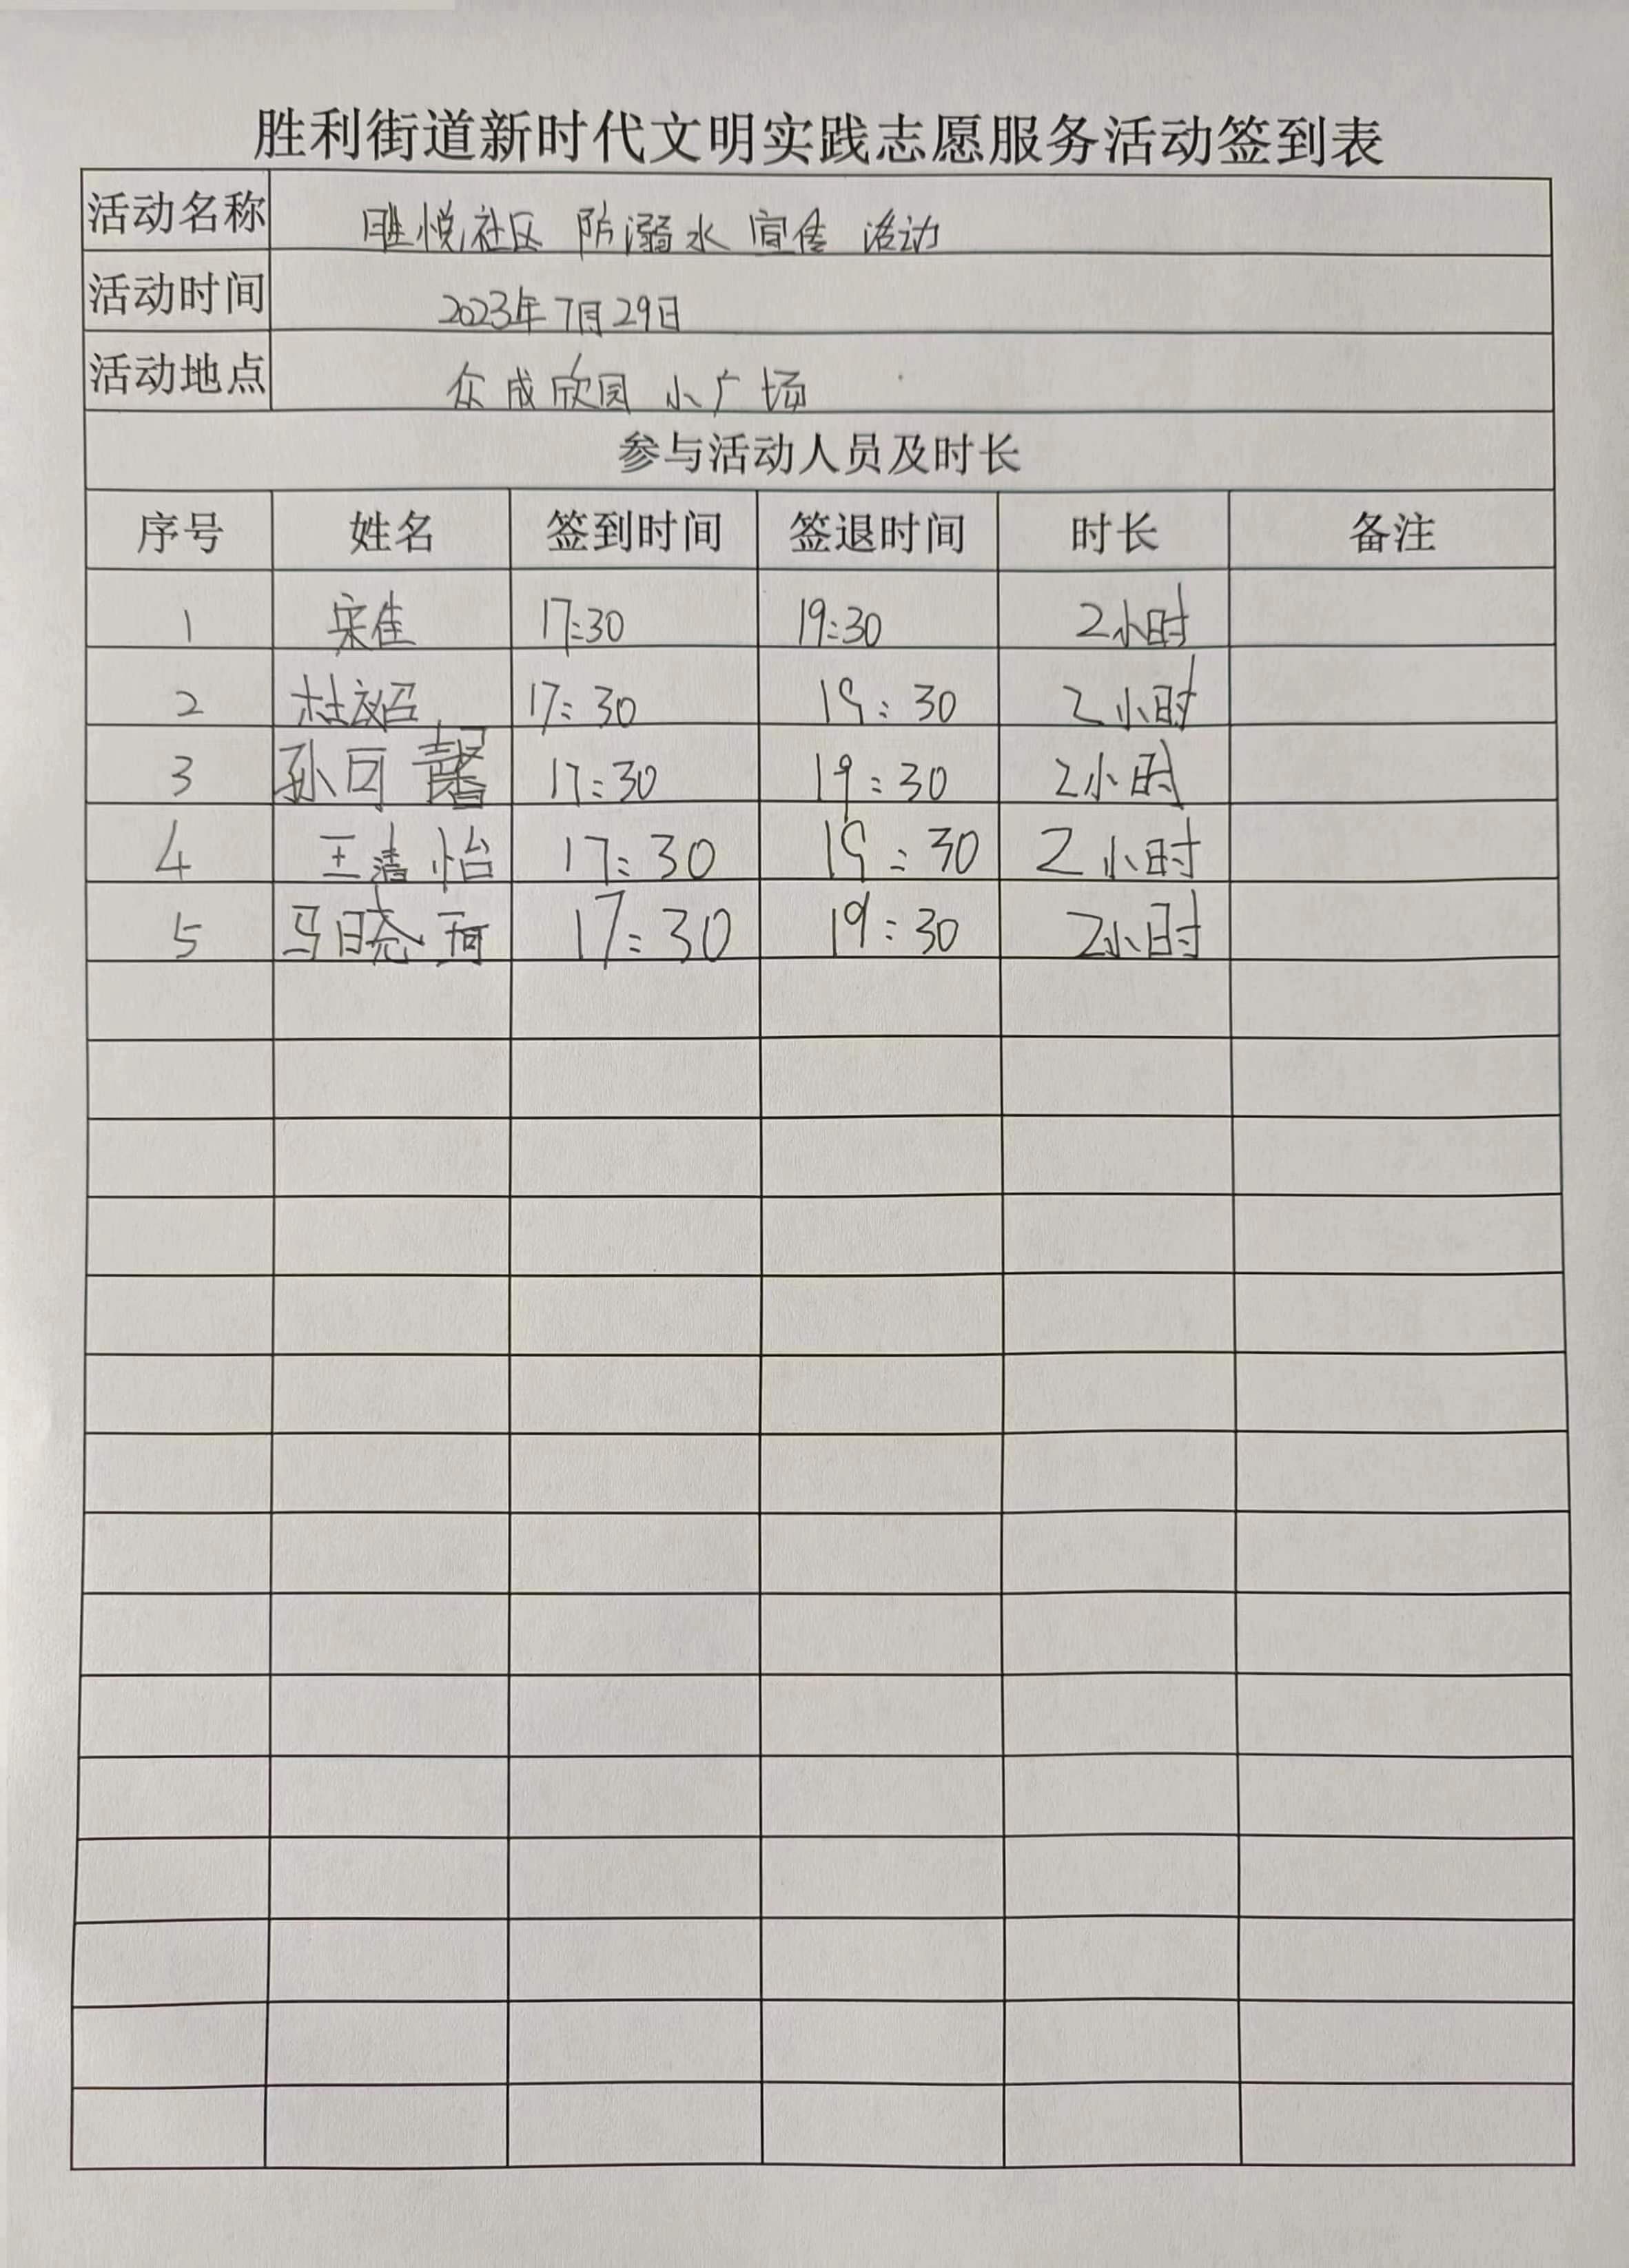 胜利街道新时代文明实践志愿服务活动签到表
活动名称 胜悦社区 防溺水 宣传 活动
活动时间 2023年7月29日
活动地点 众成欣园 小广场
参与活动人员及时长
序号 姓名 签到时间 签退时间 时长 备注
1 宋佳 17:30 19:30 2小时
2 杜 17:30 19:30 2小时
3 孙可馨 17:30 19:30 2小时
4 王清怡 17:30 19:30 2小时
5 马晓珂 17:30 19:30 2小时